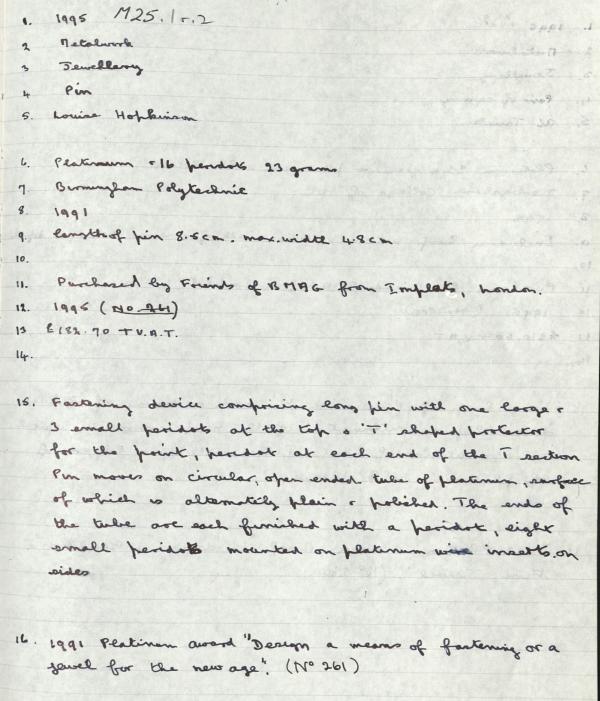 1. 1995 M25.1r.2
2 Metalwork
3 Jewellery
4 Pin
5. Louise Hopkinson
6. Platinum + 16 peridots 23 grams
7. Birmingham Polytechnic
8. 1991
9. length of pin 8.6cm. max. width 4.8cm
10.
11. Purchased by Friends of BMAG from Implats, London.
12. 1995 (No. 261)
13 £182.70 + V.A.T.
14.
15. Fastening device comprizing long pin with one large +
3 small peridots at the top + 'T' shaped protector
for the point, peridot at each end of the T section
Pin moves on circular, open ended tube of platinum, surface
of which is alternately plain + polished. The ends of
the tube are each furnished with a peridot, eight
small peridots mounted on platinum wire inserts on
sides
16. 1991 Platinum award "Design a means of fastening or a
jewel for the new age". (No 261)